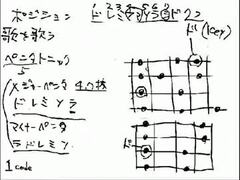 ポジション
1 2 3 4 5 6 7
ドレミファソラシド
ド (key)
歌を歌う
ペンタトニック
5
メジャーペンタ 4,7抜
ドレミソラ
マイナーペンタ
ラドレミソ
ド
1 code